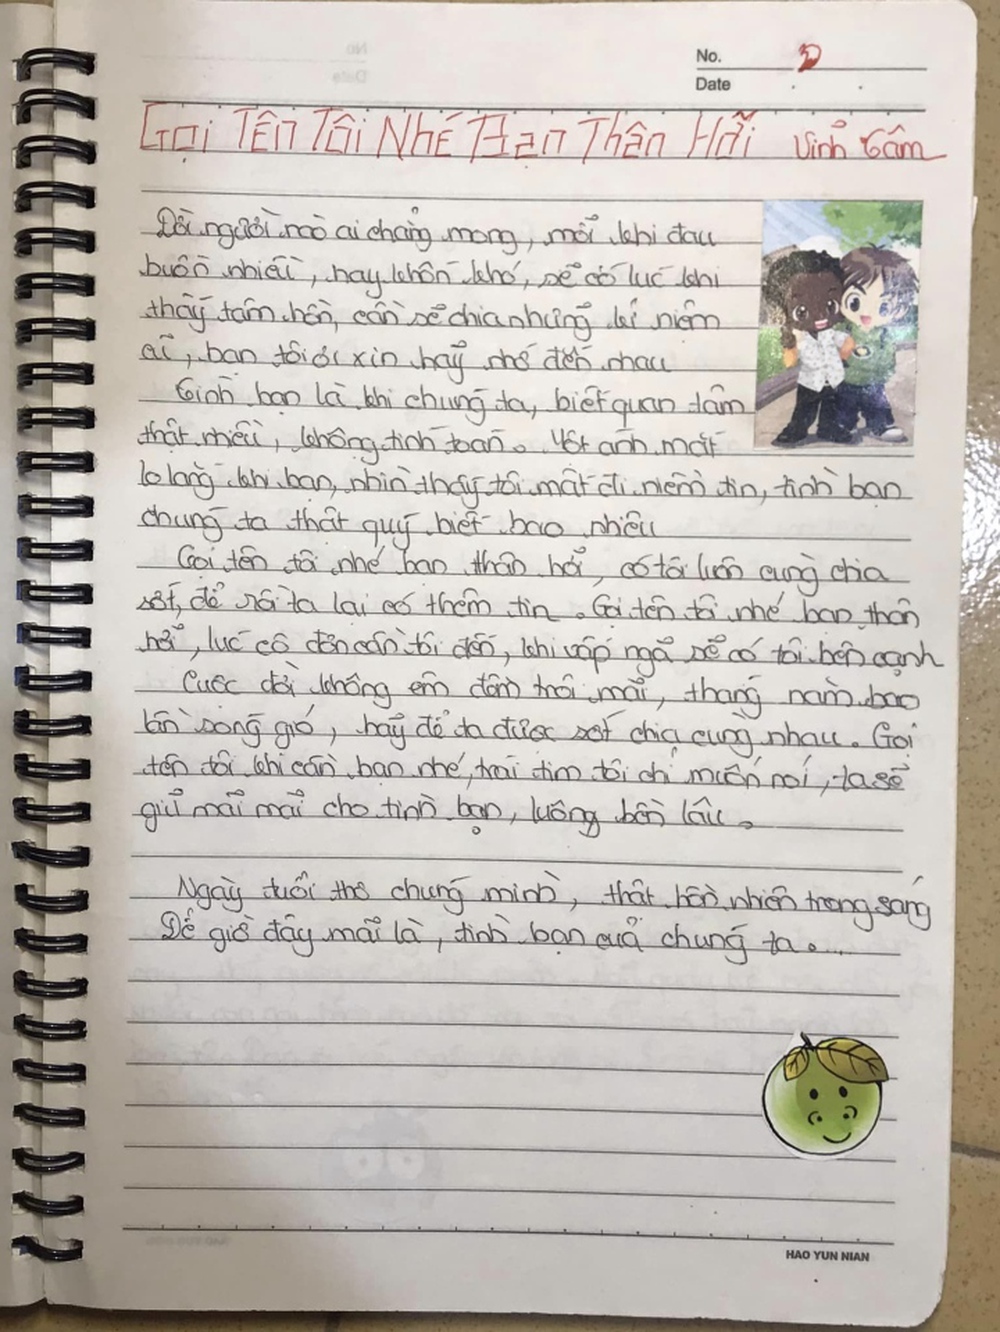 No. D
Date
Gọi Tên Tôi Nhé Bạn Thân Hỡi Vinh Tâm
Đời người nào ai chẳng mong, mỗi khi đau
buồn nhiều, hay khốn khó, sẽ có lúc khi
thấy tâm hồn, cần sẻ chia những kỉ niệm
ai, bạn tôi ơi xin hãy nhớ đến nhau
Tình bạn là khi chúng ta, biết quan tâm
thật nhiều, không tính toán. Một ánh mắt
lo lắng khi bạn, nhìn thấy tôi mất đi niềm tin, tình bạn
chúng ta thật quý biết bao nhiêu
Gọi tên tôi nhé bạn thân hỡi, có tôi luôn cùng chia
sớt, để rồi ta lại có thêm tin. Gọi tên tôi nhé bạn thân
hỡi, lúc cô đơn cần tôi đến, khi vấp ngã sẽ có tôi bên cạnh
Cuộc đời không êm đềm trôi mãi, tháng năm bao
lần sóng gió, hãy để ta được sớt chia cùng nhau. Gọi
tên tôi khi cần bạn nhé, trái tim tôi chỉ muốn nói, ta sẽ
giữ mãi mãi cho tình bạn, luông bền lâu.
Ngày tuổi thơ chúng mình, thật hồn nhiên trong sáng
Để giờ đây mãi là, tình bạn của chúng ta....
HAO YUN NIAN